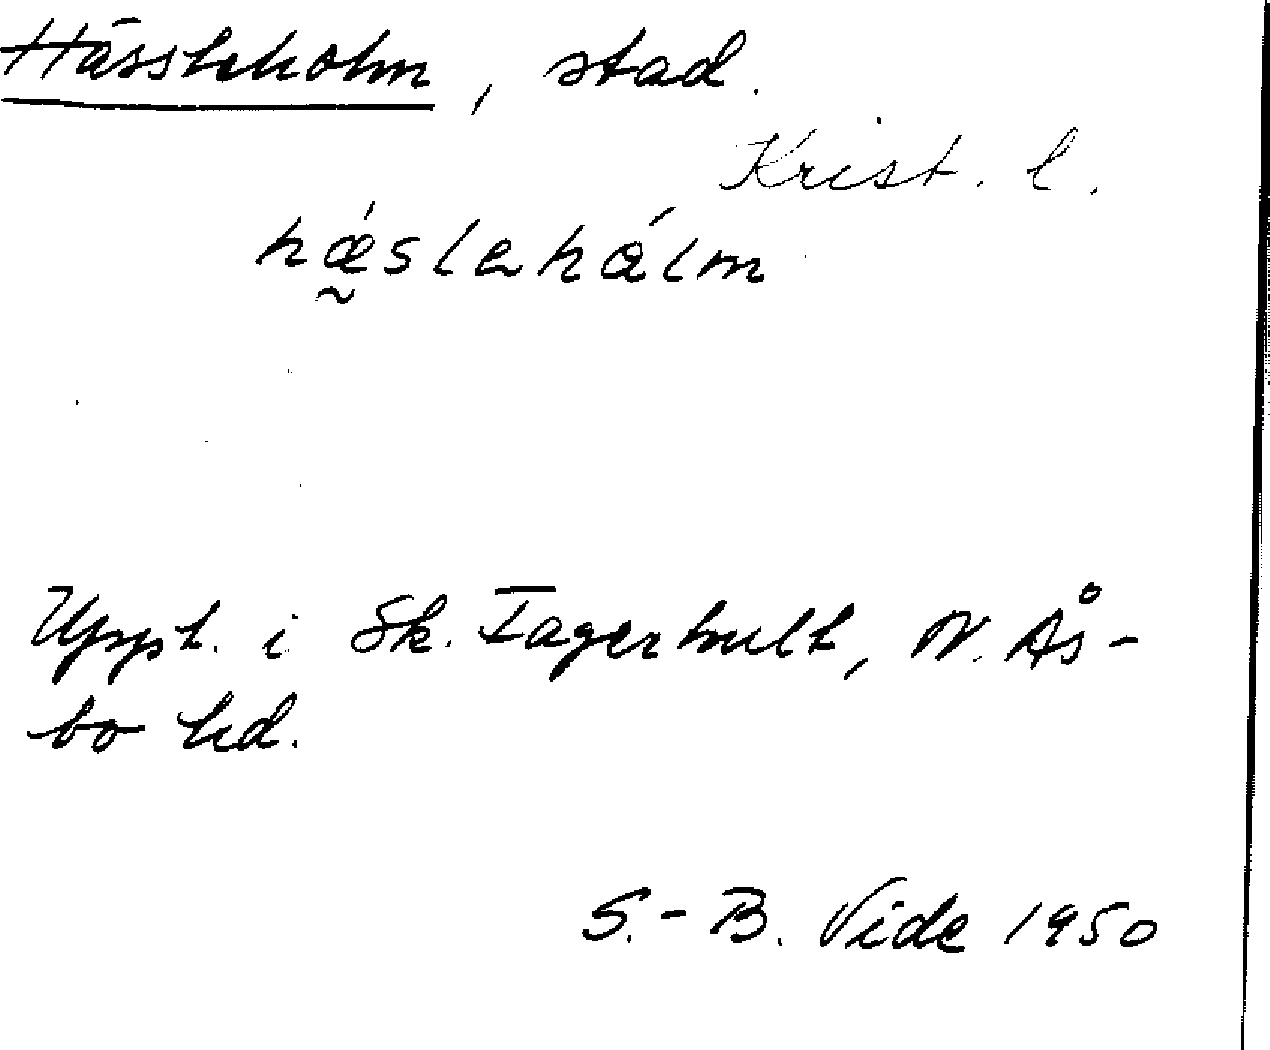 Hässleholm, stad.
Krist. l.
hǽ̰sləhálm
Uppt. i Sk. Fagerhult, N. Ås-
bo hd.
S.-B. Vide 1950